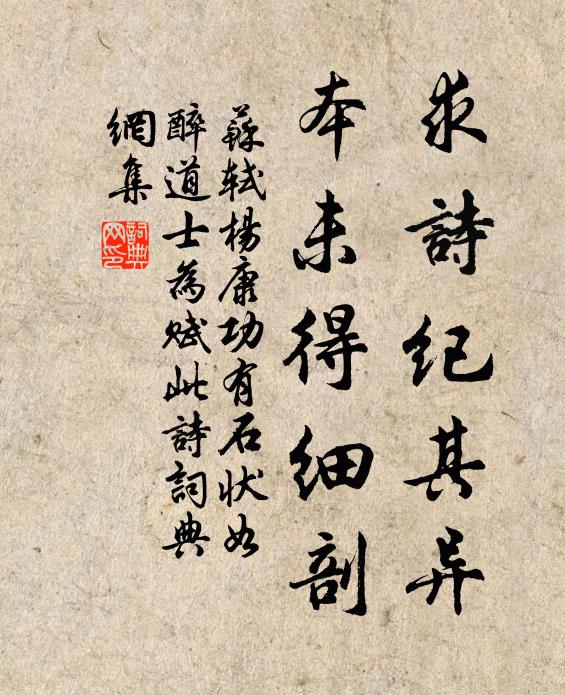 求詩紀其异
本未得細剖
蘇軾楊康功有石狀如
醉道士為賦此詩詞典
網集
詞典
网印